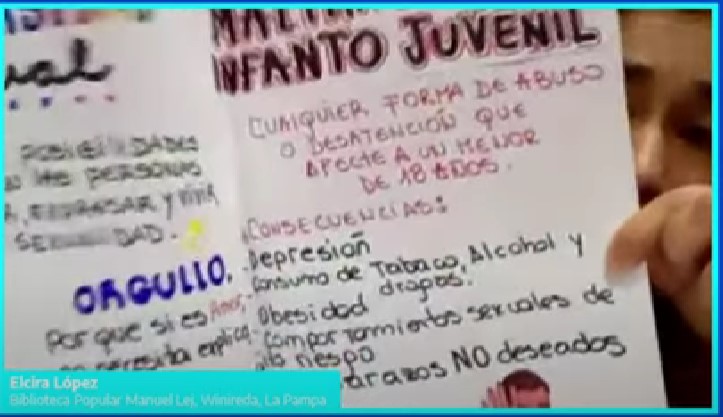 ual
POSIBILIDADES
PERSONAS
EXPRESAR y VIVA
ORGULLO.
Porque si es Amor,
necesita explica
MALTRA
INFANTO JUVENIL
CUALQUIER FORMA DE ABUSO
O DESATENCIÓN QUE
AFECTE A UN MENOR
DE 18 AÑOS.
CONSECUENCIAS:
-Depresión
-Consumo de Tabaco, Alcohol y
drogas.
-Obesidad
-Comportamientos sexuales de
alto riesgo
arazos NO deseados
Elcira López
Biblioteca Popular Manuel Lej, Winireda, La Pampa